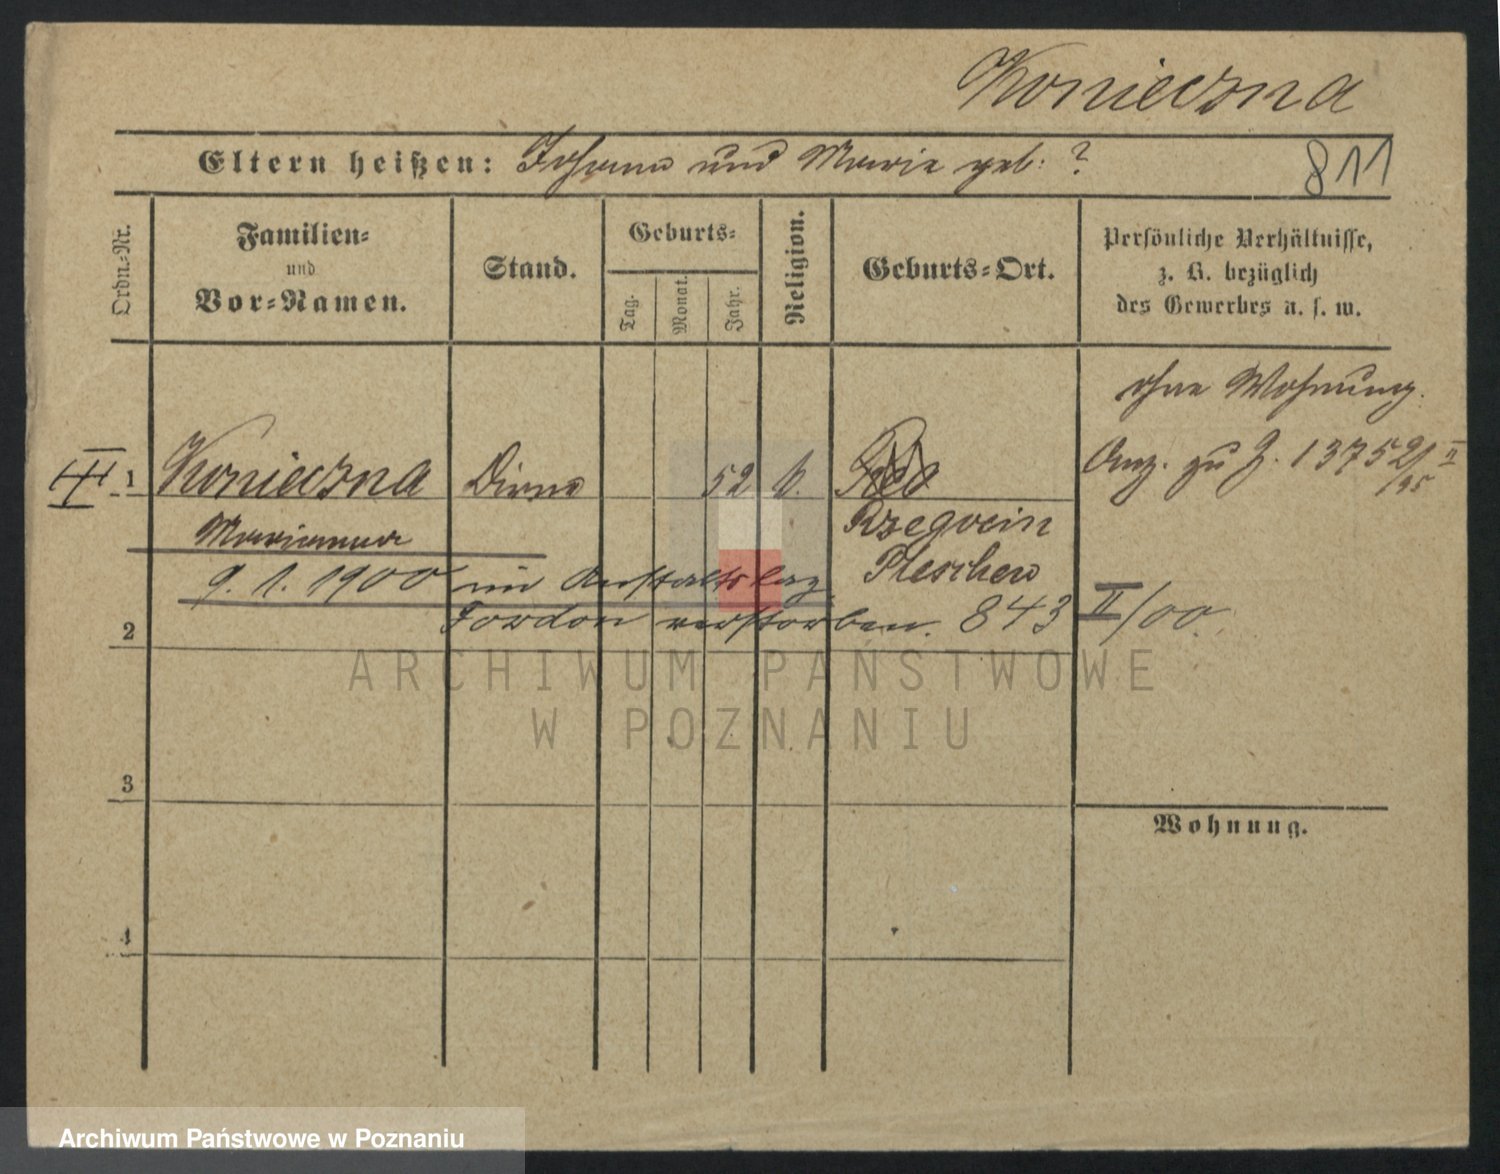 Konieczna
Eltern heißen: Johann und Marie geb: ?
811
Ordn.-Nr.
Familien-
und
Vor-Namen.
Stand.
Geburts-
Tag.
Monat.
Jahr.
Religion.
Geburts-Ort.
Persönliche Verhältnisse,
z. B. bezüglich
des Gewerbes u. s. w.
ohne Wohnung.
1 Konieczna Dirne 52 k.
Anz. zu J. 13752/II
/95
Marianna
Rzegocin
Pleschen
9. 1. 1900 im Anstaltslaz.
2
Fordon verstorben. 843 II/00.
3
Wohnung.
4
ARCHIWUM PAŃSTWOWE
W POZNANIU
Archiwum Państwowe w Poznaniu